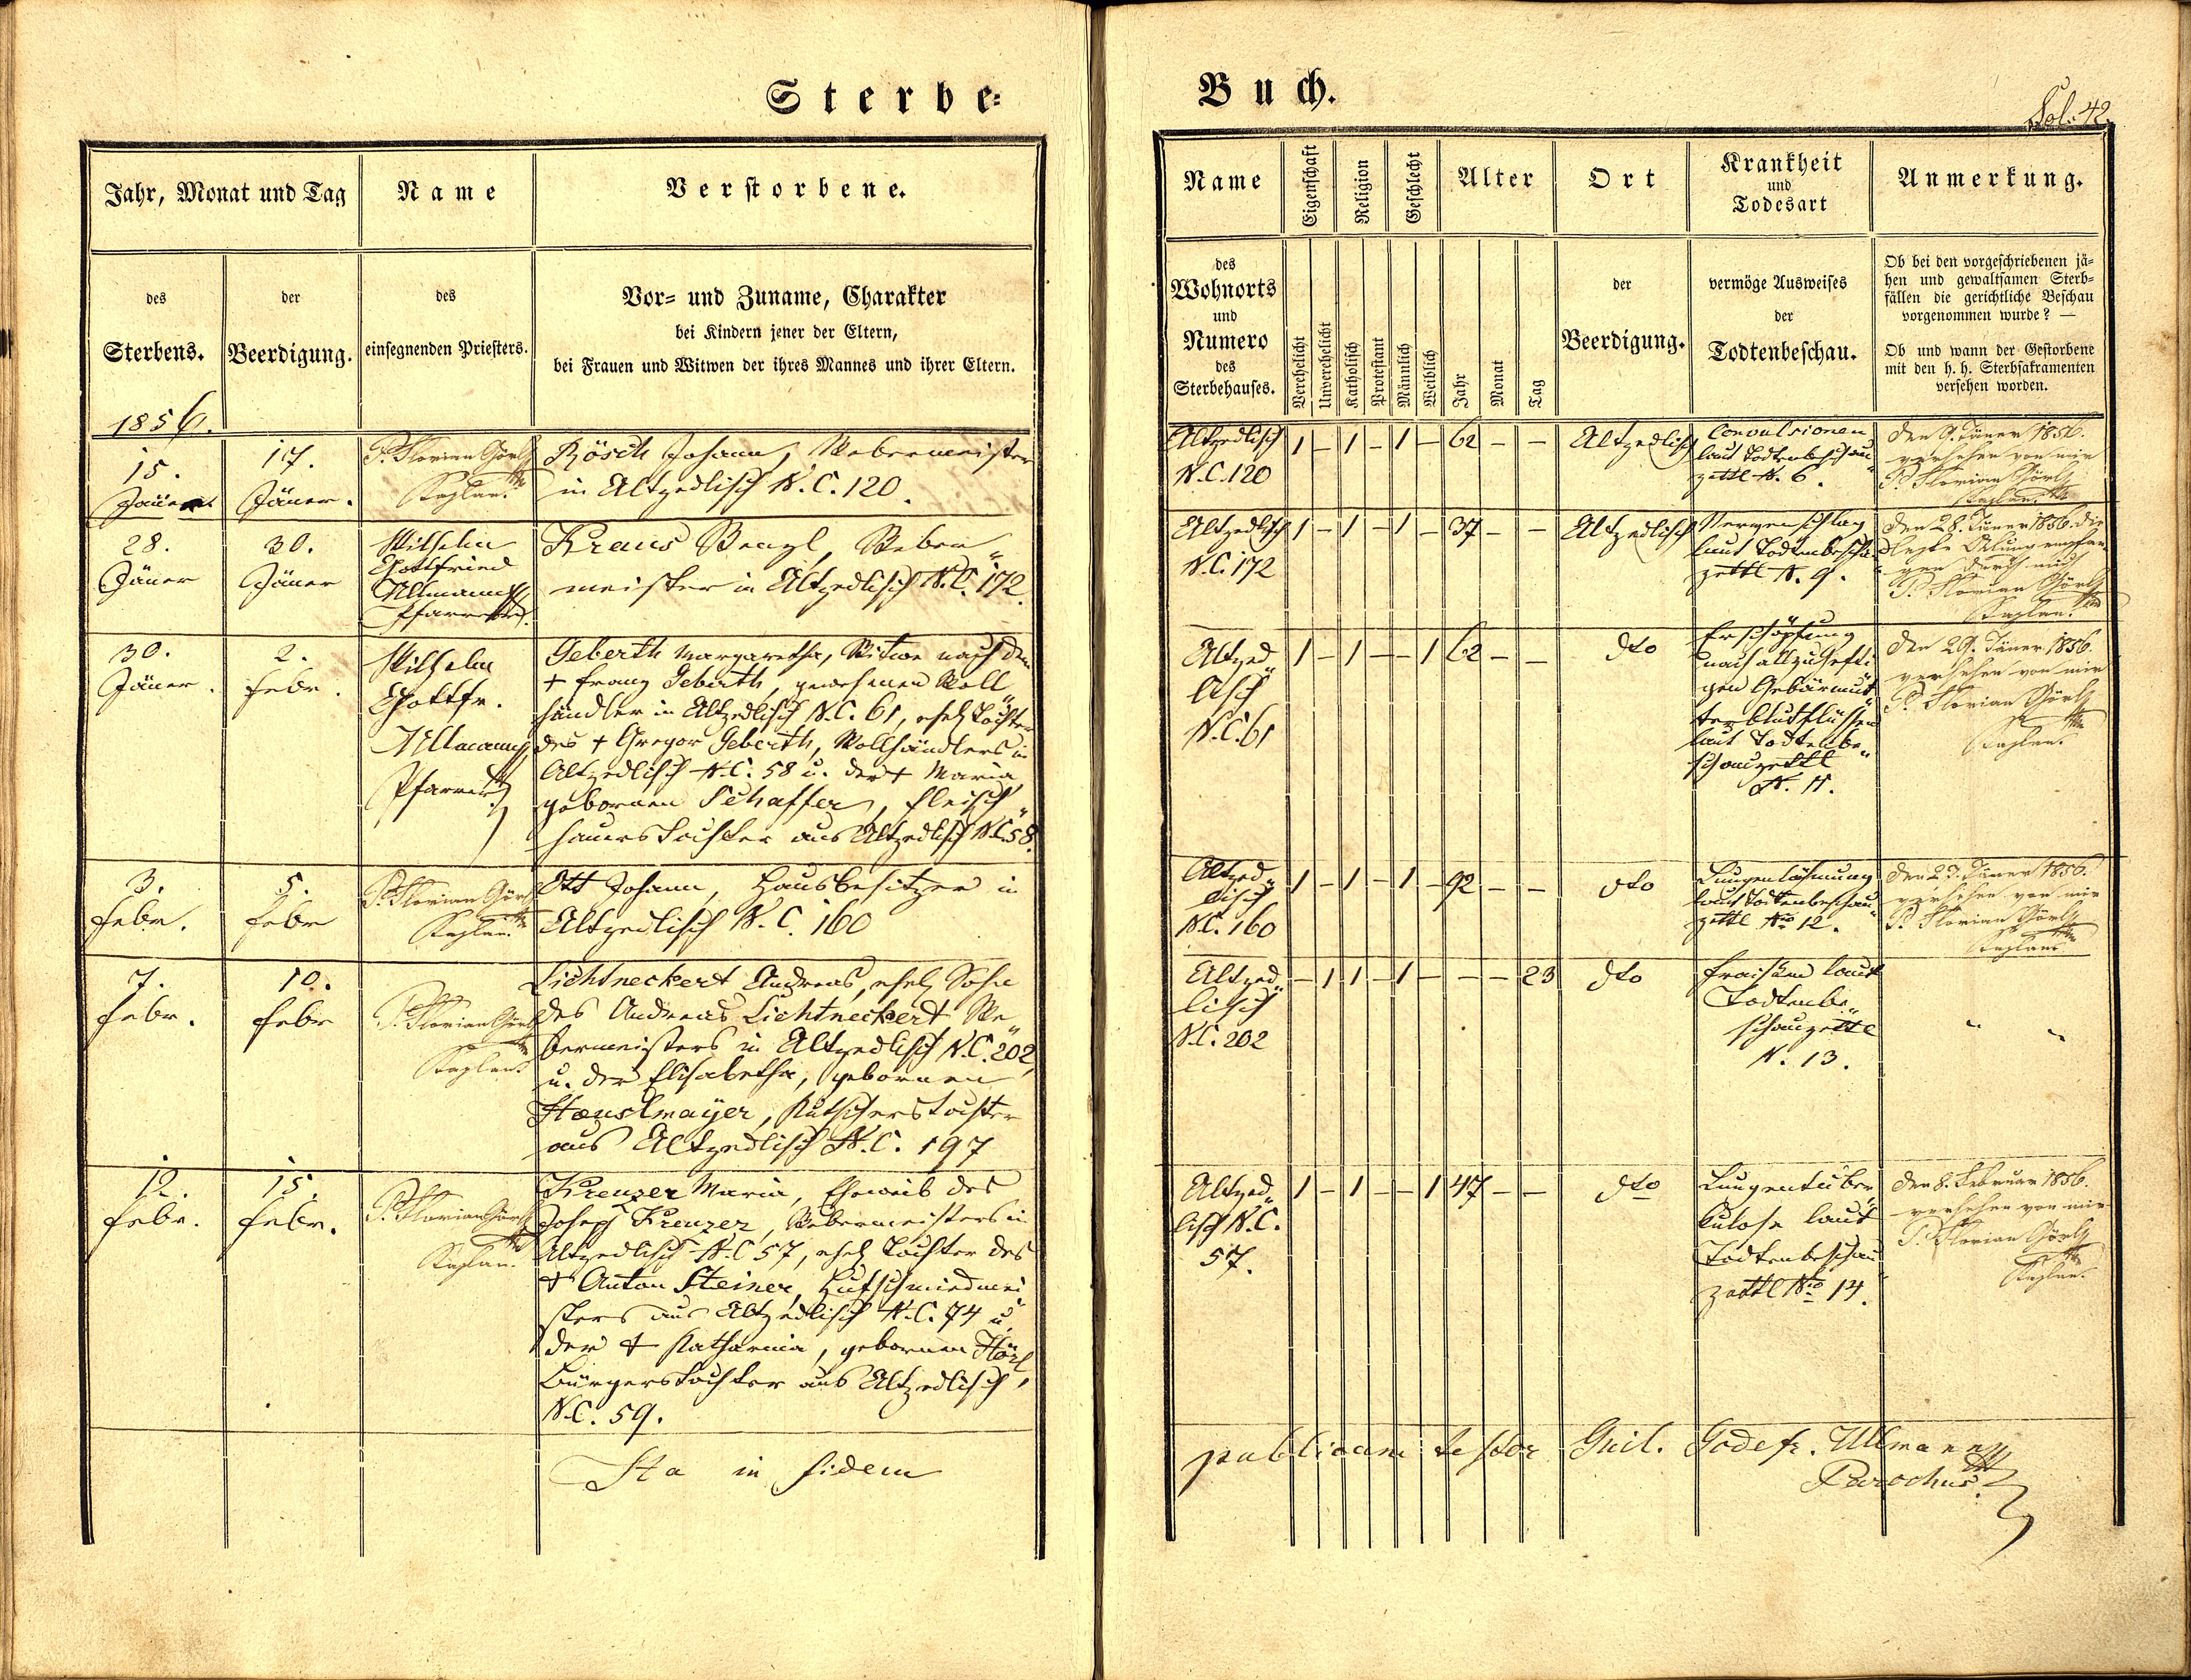 Sterbe-
Jahr, Monat und Tag
Name
Verstorbene.
des
Sterbens.
der
Beerdigung.
des
einsegnenden Priesters.
Vor- und Zuname, Charakter
bei Kindern jener der Eltern,
bei Frauen und Witwen der ihres Mannes und ihrer Eltern.
1856.
15.
Jäner
17.
Jäner.
P. Florian Görl
Kaplan.
Rösch Johann, Webermeister
in Altzedlisch N.C. 120.
28.
Jäner
30.
Jäner
Wilhelm
Gottfried
Ullmann
Pfarrer
Kraus Wenzl, Weber„
meister in Altzedlisch N.C. 172.
30.
Jäner.
2.
Febr.
Wilhelm
Gottfr.
Ullmann
Pfarrer
Geberth Margaretha, Witwe nach dem
+ Franz Geberth, gewesenen Woll„
händler in Altzedlisch N.C. 61, ehel. Tochter
des + Gregor Geberth, Wollhändlers in
Altzedlisch N.C. 58 u. der + Maria
gebornen Schaffer, Fleisch„
hauerstochter aus Altzedlisch N.C. 58.
3.
Febr.
5.
Febr
P. Florian Görl
Kaplan.
Ott Johann, Hausbesitzer in
Altzedlisch N.C. 160
7.
Febr.
10.
Febr
P. Florian Görl
Kaplan.
Lichtneckert Andreas, ehel. Sohn
des Andreas Lichtneckert We„
bermeisters in Altzedlisch N.C. 202,
u. der Elisabetha, gebornen
Haenslmayer, Kutscherstochter
aus Altzedlisch N.C. 197
12.
Febr.
15.
Febr.
P. Florian Görl
Kaplan.
Kreuzer Maria, Eheweib des
Joseph Kreuzer, Webermeisters in
Altzedlisch N.C 57, ehel. Tochter des
+ Anton Steiner, Hufschmiedmei„
sters aus Altzedlisch N.C. 74 u.
der + Katharina, gebornen Hörl,
Bürgerstochter aus Altzedlisch
N.C. 59.
Ita in fidem
Buch.
Fol. 42.
Name
Eigenschaft
Religion
Geschlecht
Alter
Ort
Krankheit
und
Todesart
Anmerkung.
des
Wohnorts
und
Numero
des
Sterbehauses.
Verehelicht
Unverehelicht
Katholisch
Protestant
Männlich
Weiblich
Jahr
Monat
Tag
der
Beerdigung.
vermöge Ausweises
der
Todtenbeschau.
Ob bei den vorgeschriebenen jä-
hen und gewaltsamen Sterb-
fällen die gerichtliche Beschau
vorgenommen wurde? —
Ob und wann der Gestorbene
mit den h. h. Sterbsakramenten
versehen worden.
Altzedlisch
N.C. 120
1 – 1 – 1 – 62 – –
Altzedlisch
Convulsionen
laut Todtenbeschau„
zettl N. 6.
Den 9. Jäner 1856.
versehen von mir
P. Florian Görl
Kaplan.
Altzedlisch
N.C. 172
1 – 1 – 1 – 37 – –
Altzedlisch
Nervenschlag
laut Todtenbeschau„
zettl N. 9.
Den 28. Jäner 1856. die
letzte Ölung empfan„
gen durch mich
P. Florian Görl
Kaplan.
Altzed„
lisch
N.C. 61
1 – 1 – – 1 62 – –
dto
Erschöpfung
nach allzuhefti„
gen Gebärmut„
terblutflüssen
laut Todtenbe„
schauzettl
N. 11.
Den 29. Jäner 1856.
versehen von mir
P. Florian Görl
Kaplan.
Altzed„
lisch
N.C. 160
1 – 1 – 1 – 92 – –
dto
Lungenlähmung
laut Todtenbeschau„
zettl No 12.
Jäner 1856.
versehen von mir
P. Florian Görl
Kaplan.
Altzed„
lisch
N.C. 202
– 1 1 – 1 – – – 23
dto
Fraisen laut
Todtenbe„
schauzettl
N. 13.
„ „
Altzed„
lisch N.C.
57.
1 – 1 – – 1 47 – –
dto
Lungentuber„
kulose laut
Todtenbeschau„
zettl No 14.
Den 8. Februar 1856.
versehen von mir
P. Florian Görl
Kaplan.
publicam testor Guil. Godefr. Ullmann
Parochus.